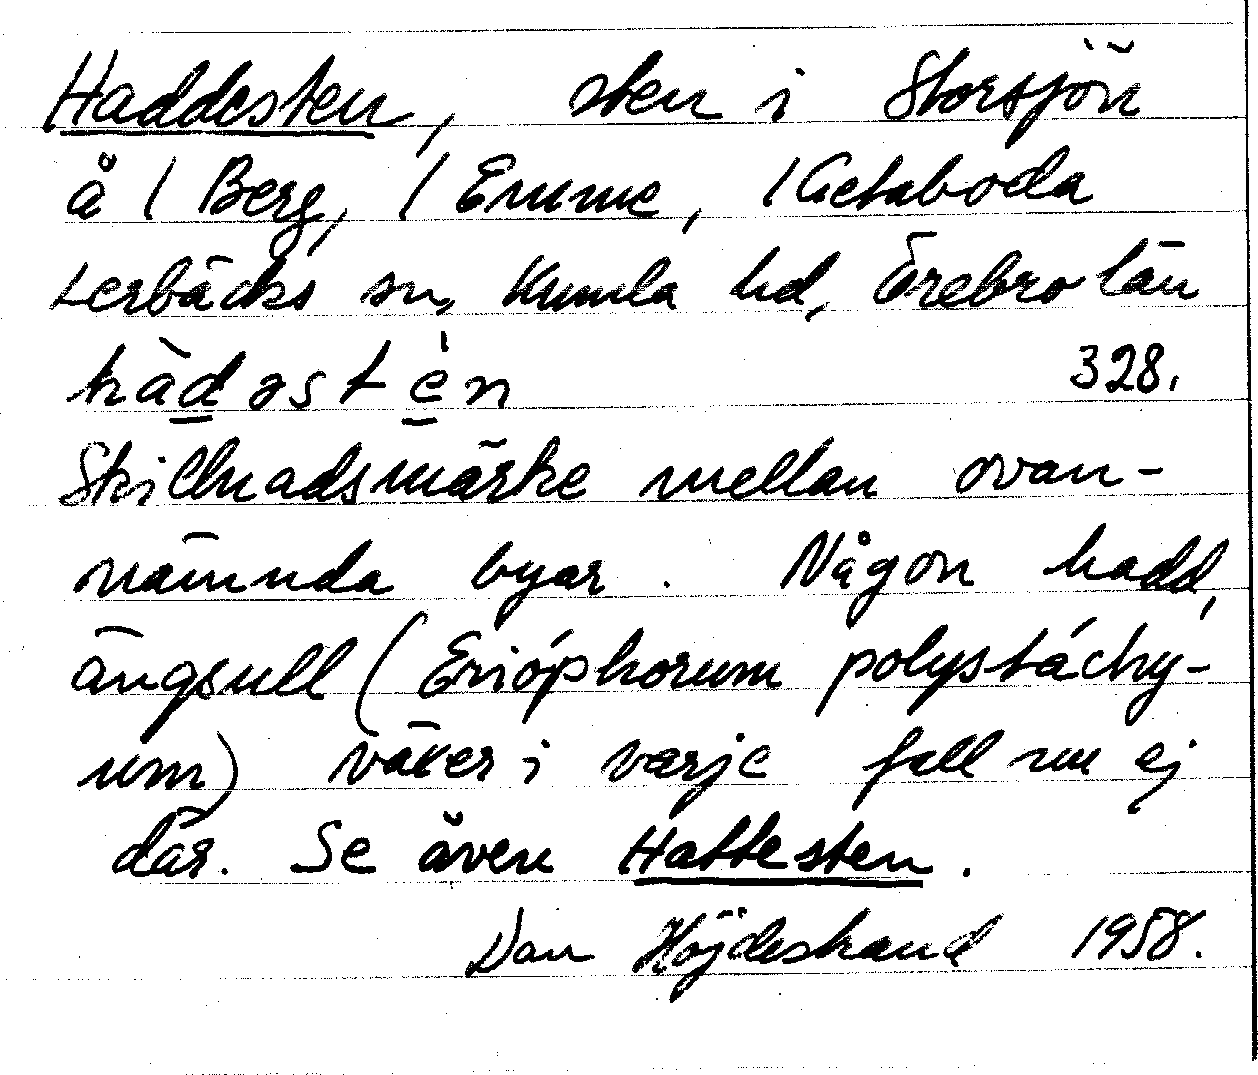 Haddesten, sten i Storsjön
å 1 Berg, 1 Emme, 1 Getaboda
Lerbäcks sn, Kumla hd, Örebro län
hàdəstèn 328.
Skillnadsmärke mellan ovan-
nämnda byar. Någon hadd,
ängsull (Erióphorum polystáchy-
um) växer i varje fall nu ej
där. Se även Hattesten.
Dan Höjdestrand 1958.